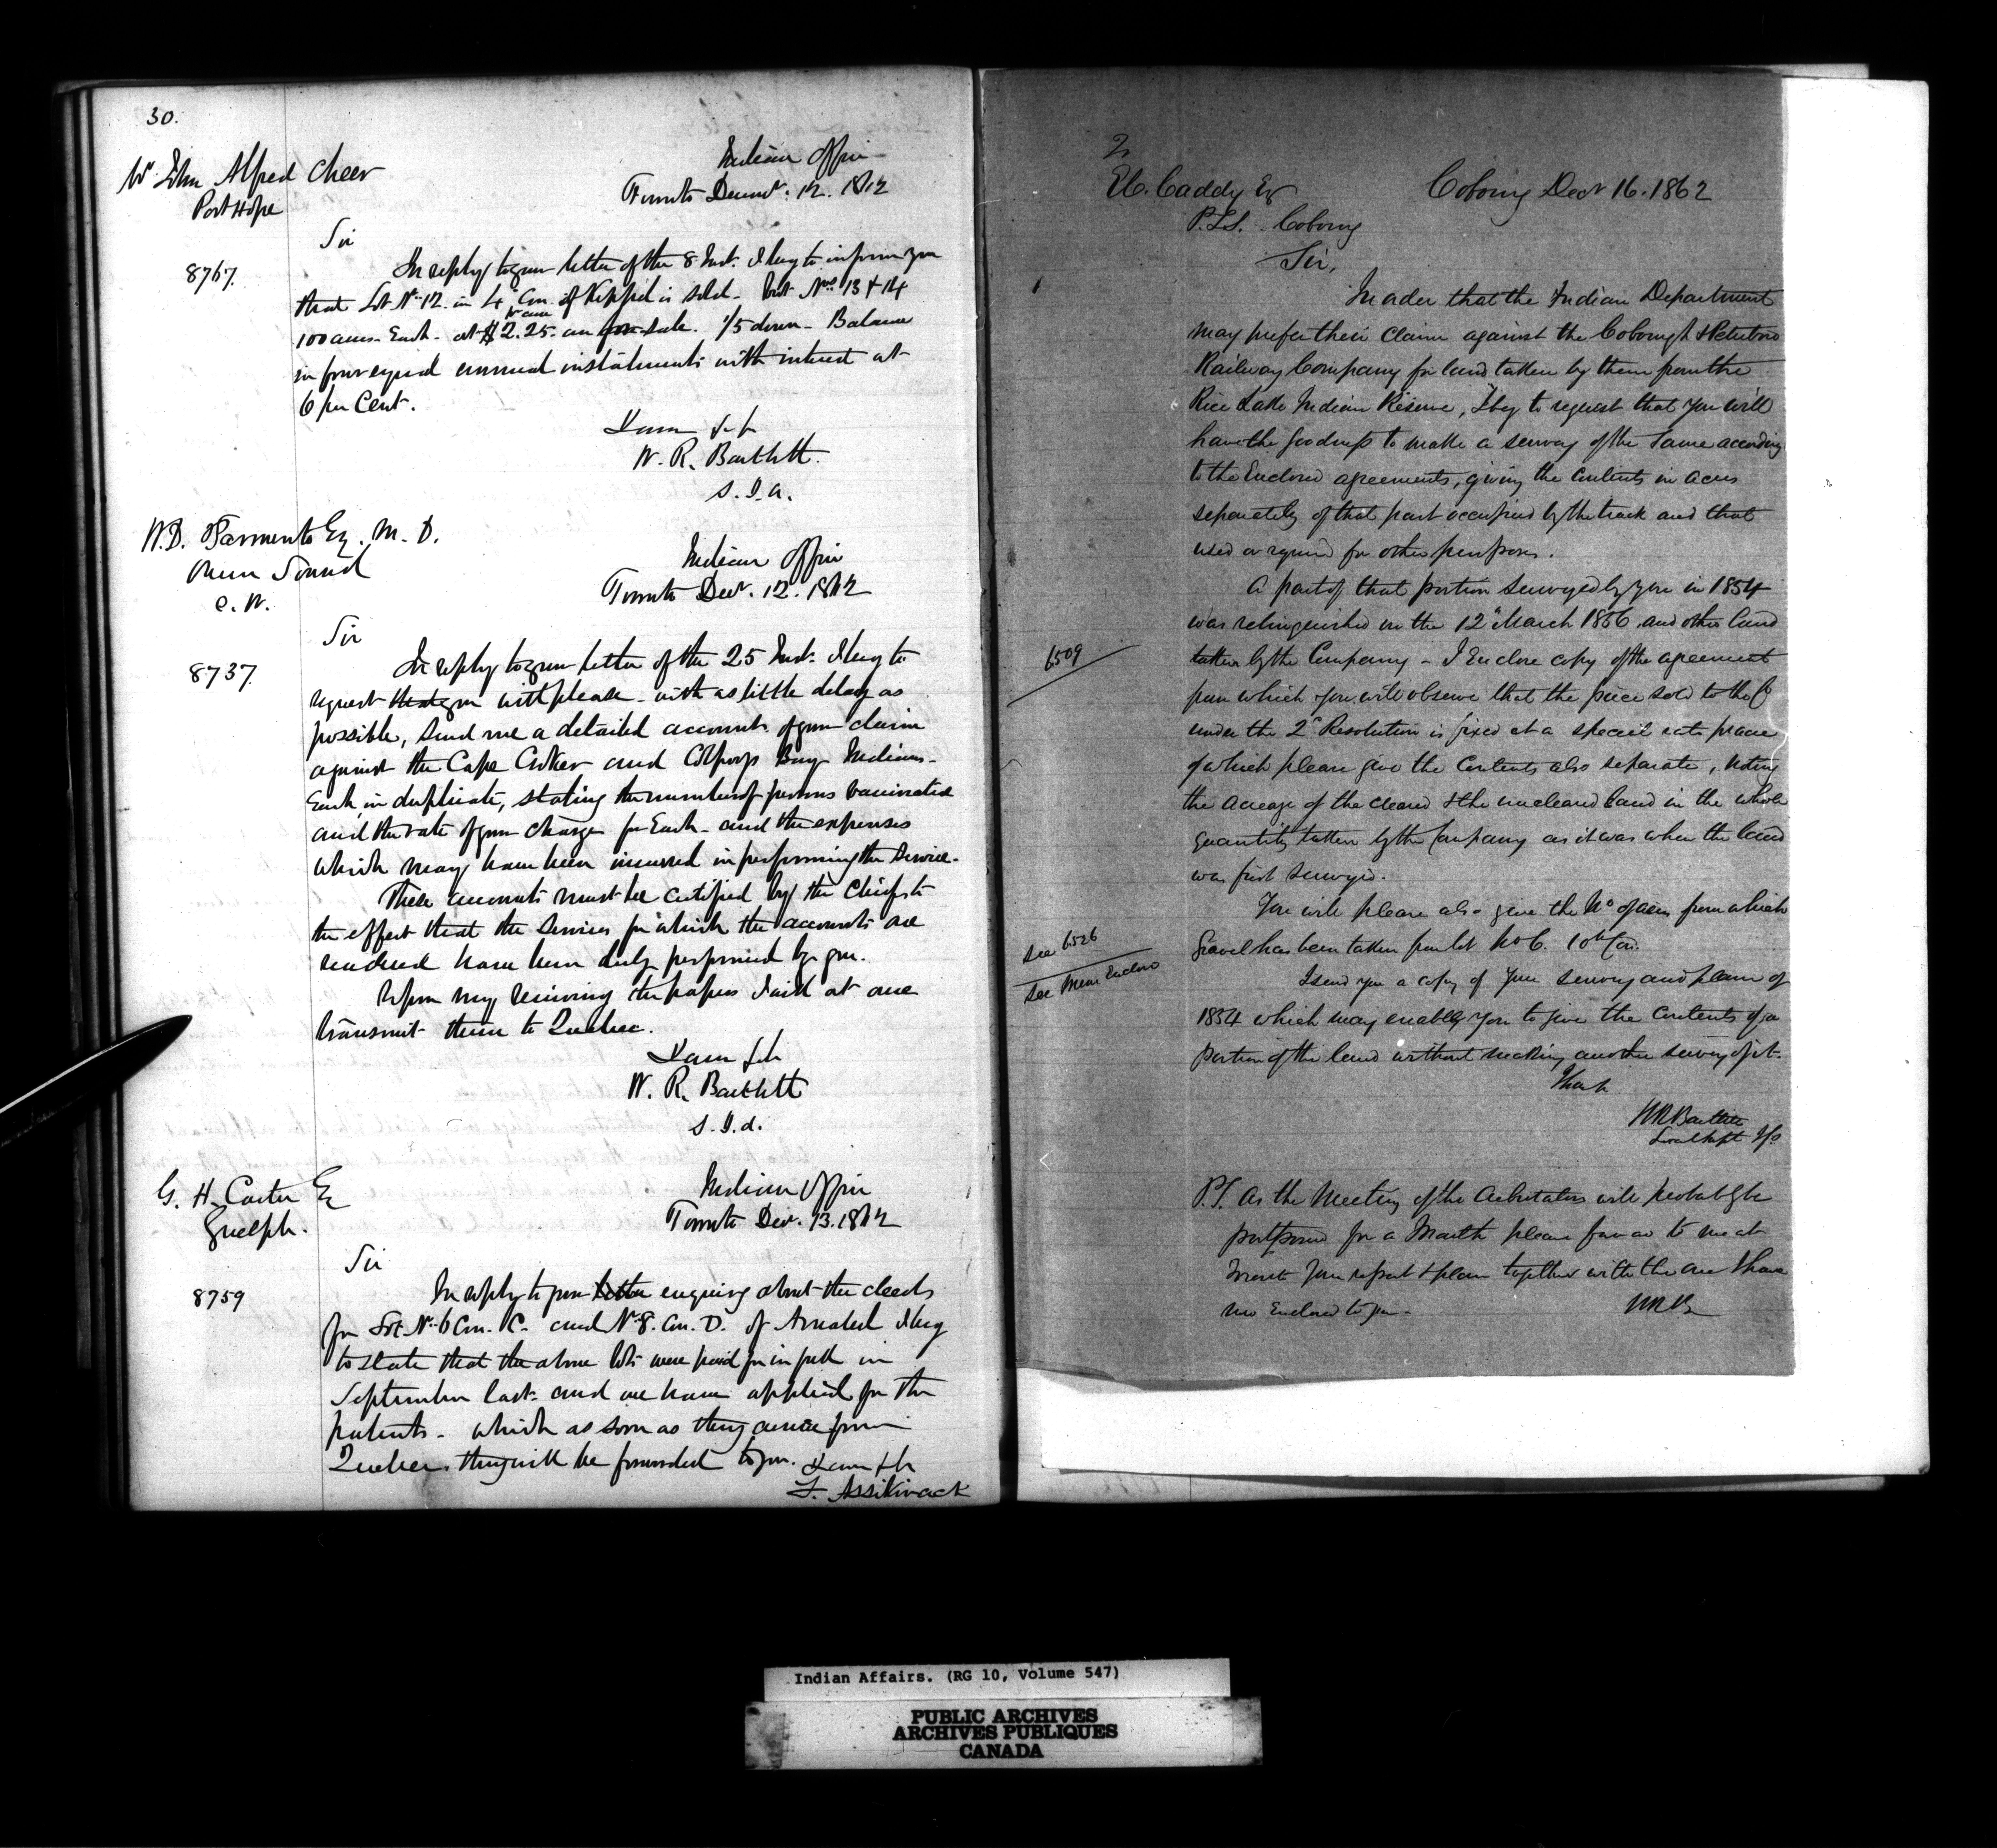 30.
Mr John Alfred Cheer
Port Hope
Indian Office
Toronto Decemr. 12. 1862
Sir
8767.
In reply to your letter of the 8 Inst. I beg to inform you
that Lot No. 12. in 4 Con. of Keppel is sold - but Nos 13 & 14
100 acres Each - at $2.25 per acre are for sale. 1/5 down - Balance
in four equal annual instalments with interest at
6 per Cent.
I am &c
W. R. Bartlett.
S.I.A.
Esq. M. D.
Owen Sound
C. W.
Indian Office
Toronto Decr. 12. 1862
Sir
8737.
In reply to your letter of the 25 Inst. I beg to
request that you will please - with as little delay as
possible, send me a detailed account of your claim
against the Cape Croker and Colpoys Bay Indians -
Each in duplicate, stating the number of persons vaccinated
and the rate of your charge for Each - and the expenses
which may have been incurred in performing the service -
These accounts must be certified by the Chiefs to
the effect that the services for which the accounts are
rendered have been duly performed by you.
Upon my receiving the papers I will at once
transmit them to Quebec.
I am &c
W. R. Bartlett
S.I.A.
G. H. Carter Esq
Guelph.
Indian Office
Toronto Decr. 13. 1862
Sir
8759
In reply to your letter enquiring about the deeds
for Lot No. 6 Con. C. and No 8. Con. D. of Amabel I beg
to state that the above lots were paid for in full in
September last - and we have applied for the
patents - which as soon as they arrive from
Quebec. they will be forwarded to you. I am &c
F. Assikinack
2
E.C. Caddy Esq
P.L.S. Cobourg
Cobourg Decr 16. 1862
Sir,
In order that the Indian Department
may prefer their claim against the Cobourg & Peterboro
Railway Company for land taken by them from the
Rice Lake Indian Reserve, I beg to request that you will
have the goodness to make a survey of the same according
to the Enclosed agreements, giving the contents in acres
separately of that part occupied by the track and that
used or required for other purposes.
A part of that portion surveyed by you in 1854
was relinquished on the 12th March 1856 and other land
6509
taken by the Company - I Enclose copy of the agreement
from which you will observe that the piece sold to the Co
under the 2d Resolution is fixed at a special rate per acre
of which please give the contents also separate, noting
the acreage of the cleared & the uncleared land in the whole
quantity taken by the Company as it was when the land
was first surveyed.
You will please also give the No of acres from which
see 6526
gravel has been taken from lot No 6. 10th Con.
see Mem Enclos
I send you a copy of your survey and plan of
1854 which may enable you to give the contents of a
portion of the land without making another survey of it.
I have &c
W R Bartlett
P.S. As the Meeting of the Arbitrators will probably be
postponed for a Month please forward to me at
Toronto your report & plan together with the one I have
now Enclosed to you -
WRB
Indian Affairs. (RG 10, Volume 547)
PUBLIC ARCHIVES
ARCHIVES PUBLIQUES
CANADA